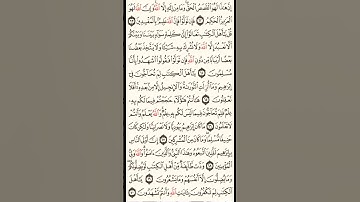 إِنَّ هَٰذَا لَهُوَ ٱلْقَصَصُ ٱلْحَقُّ وَمَا مِنْ إِلَٰهٍ إِلَّا ٱللَّهُ وَإِنَّ ٱللَّهَ لَهُوَ
ٱلْعَزِيزُ ٱلْحَكِيمُ ٦٢ فَإِن تَوَلَّوْا۟ فَإِنَّ ٱللَّهَ عَلِيمٌۢ بِٱلْمُفْسِدِينَ ٦٣
قُلْ يَٰٓأَهْلَ ٱلْكِتَٰبِ تَعَالَوْا۟ إِلَىٰ كَلِمَةٍ سَوَآءٍۭ بَيْنَنَا وَبَيْنَكُمْ
أَلَّا نَعْبُدَ إِلَّا ٱللَّهَ وَلَا نُشْرِكَ بِهِۦ شَيْـًٔا وَلَا يَتَّخِذَ بَعْضُنَا
بَعْضًا أَرْبَابًا مِّن دُونِ ٱللَّهِ فَإِن تَوَلَّوْا۟ فَقُولُوا۟ ٱشْهَدُوا۟ بِأَنَّا
مُسْلِمُونَ ٦٤ يَٰٓأَهْلَ ٱلْكِتَٰبِ لِمَ تُحَآجُّونَ فِىٓ
إِبْرَٰهِيمَ وَمَآ أُنزِلَتِ ٱلتَّوْرَىٰةُ وَٱلْإِنجِيلُ إِلَّا مِنۢ بَعْدِهِۦٓ أَفَلَا
تَعْقِلُونَ ٦٥ هَٰٓأَنتُمْ هَٰٓؤُلَآءِ حَٰجَجْتُمْ فِيمَا لَكُم بِهِۦ
عِلْمٌ فَلِمَ تُحَآجُّونَ فِيمَا لَيْسَ لَكُم بِهِۦ عِلْمٌ وَٱللَّهُ يَعْلَمُ وَأَنتُمْ
لَا تَعْلَمُونَ ٦٦ مَا كَانَ إِبْرَٰهِيمُ يَهُودِيًّا وَلَا نَصْرَانِيًّا وَلَٰكِن كَانَ
حَنِيفًا مُّسْلِمًا وَمَا كَانَ مِنَ ٱلْمُشْرِكِينَ ٦٧ إِنَّ أَوْلَى ٱلنَّاسِ
بِإِبْرَٰهِيمَ لَلَّذِينَ ٱتَّبَعُوهُ وَهَٰذَا ٱلنَّبِىُّ وَٱلَّذِينَ ءَامَنُوا۟ وَٱللَّهُ وَلِىُّ
ٱلْمُؤْمِنِينَ ٦٨ وَدَّت طَّآئِفَةٌ مِّنْ أَهْلِ ٱلْكِتَٰبِ لَوْ يُضِلُّونَكُمْ
وَمَا يُضِلُّونَ إِلَّآ أَنفُسَهُمْ وَمَا يَشْعُرُونَ ٦٩ يَٰٓأَهْلَ
ٱلْكِتَٰبِ لِمَ تَكْفُرُونَ بِـَٔايَٰتِ ٱللَّهِ وَأَنتُمْ تَشْهَدُونَ ٧٠